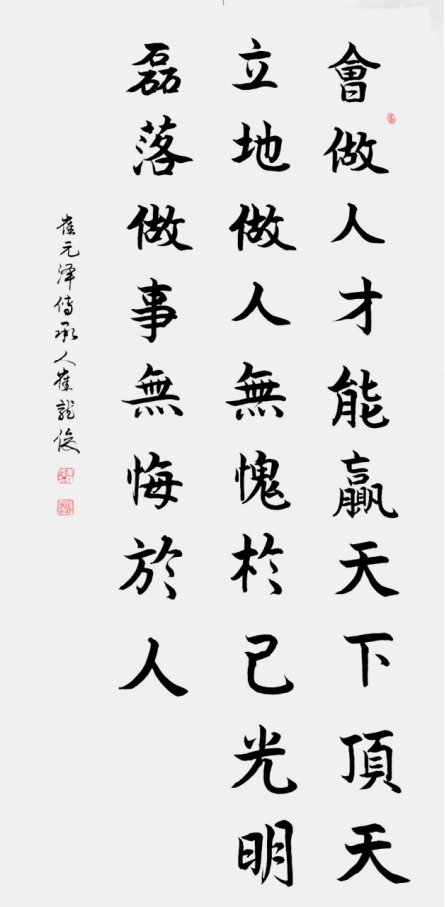 會做人才能贏天下頂天
立地做人無愧於己光明
磊落做事無悔於人
崔元澤傳承人崔龍俊